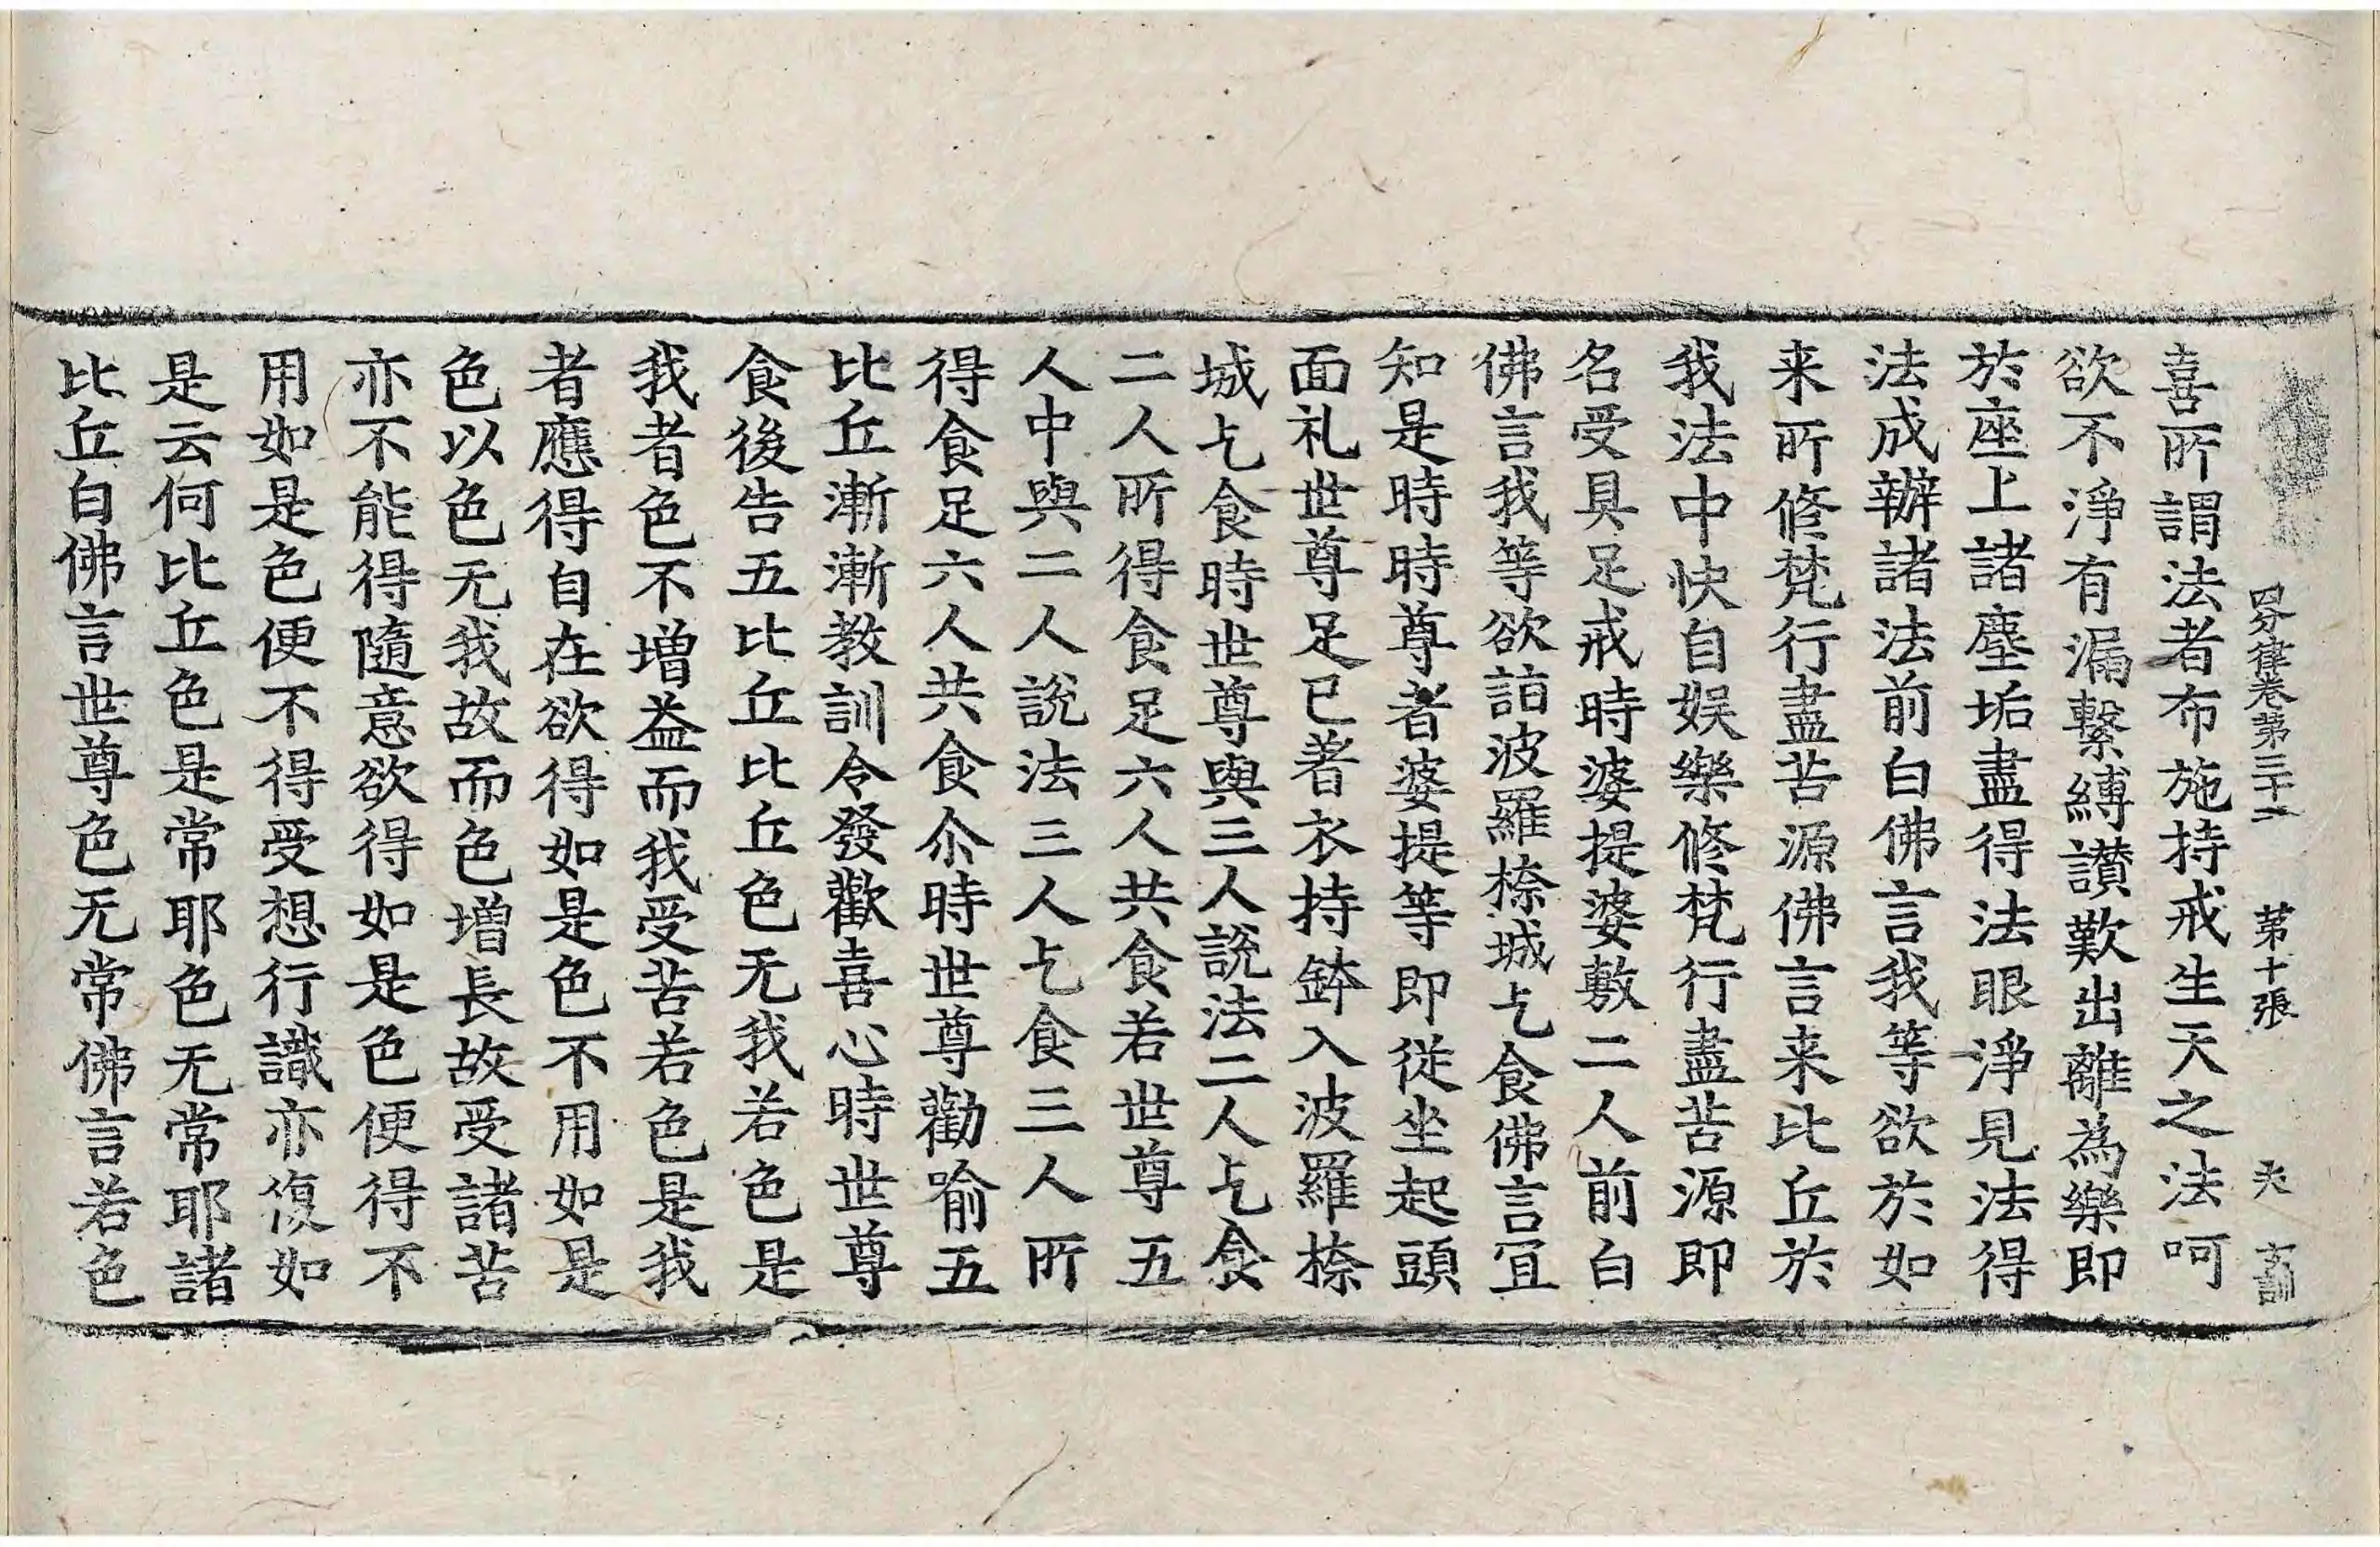 四分律卷第三十二 第十張 夫
喜所謂法者布施持戒生天之法呵
欲不淨有漏繫縛讃歎出離為樂即
於座上諸塵垢盡得法眼淨見法得
法成辦諸法前白佛言我等欲於如
来所修梵行盡苦源佛言来比丘於
我法中快自娱樂修梵行盡苦源即
名受具足戒時婆提婆敷二人前白
佛言我等欲詣波羅㮈城乞食佛言冝
知是時時尊者婆提等即從坐起頭
面礼世尊足已著衣持鉢入波羅㮈
城乞食時世尊與三人說法二人乞食
二人所得食足六人共食若世尊五
人中與二人說法三人乞食三人所
得食足六人共食尒時世尊勸喻五
比丘漸漸教訓令發歡喜心時世尊
食後告五比丘比丘色无我若色是
我者色不增益而我受苦若色是我
者應得自在欲得如是色不用如是
色以色无我故而色增長故受諸苦
亦不能得隨意欲得如是色便得不
用如是色便不得受想行識亦復如
是云何比丘色是常耶色无常耶諸
比丘白佛言世尊色无常佛言若色